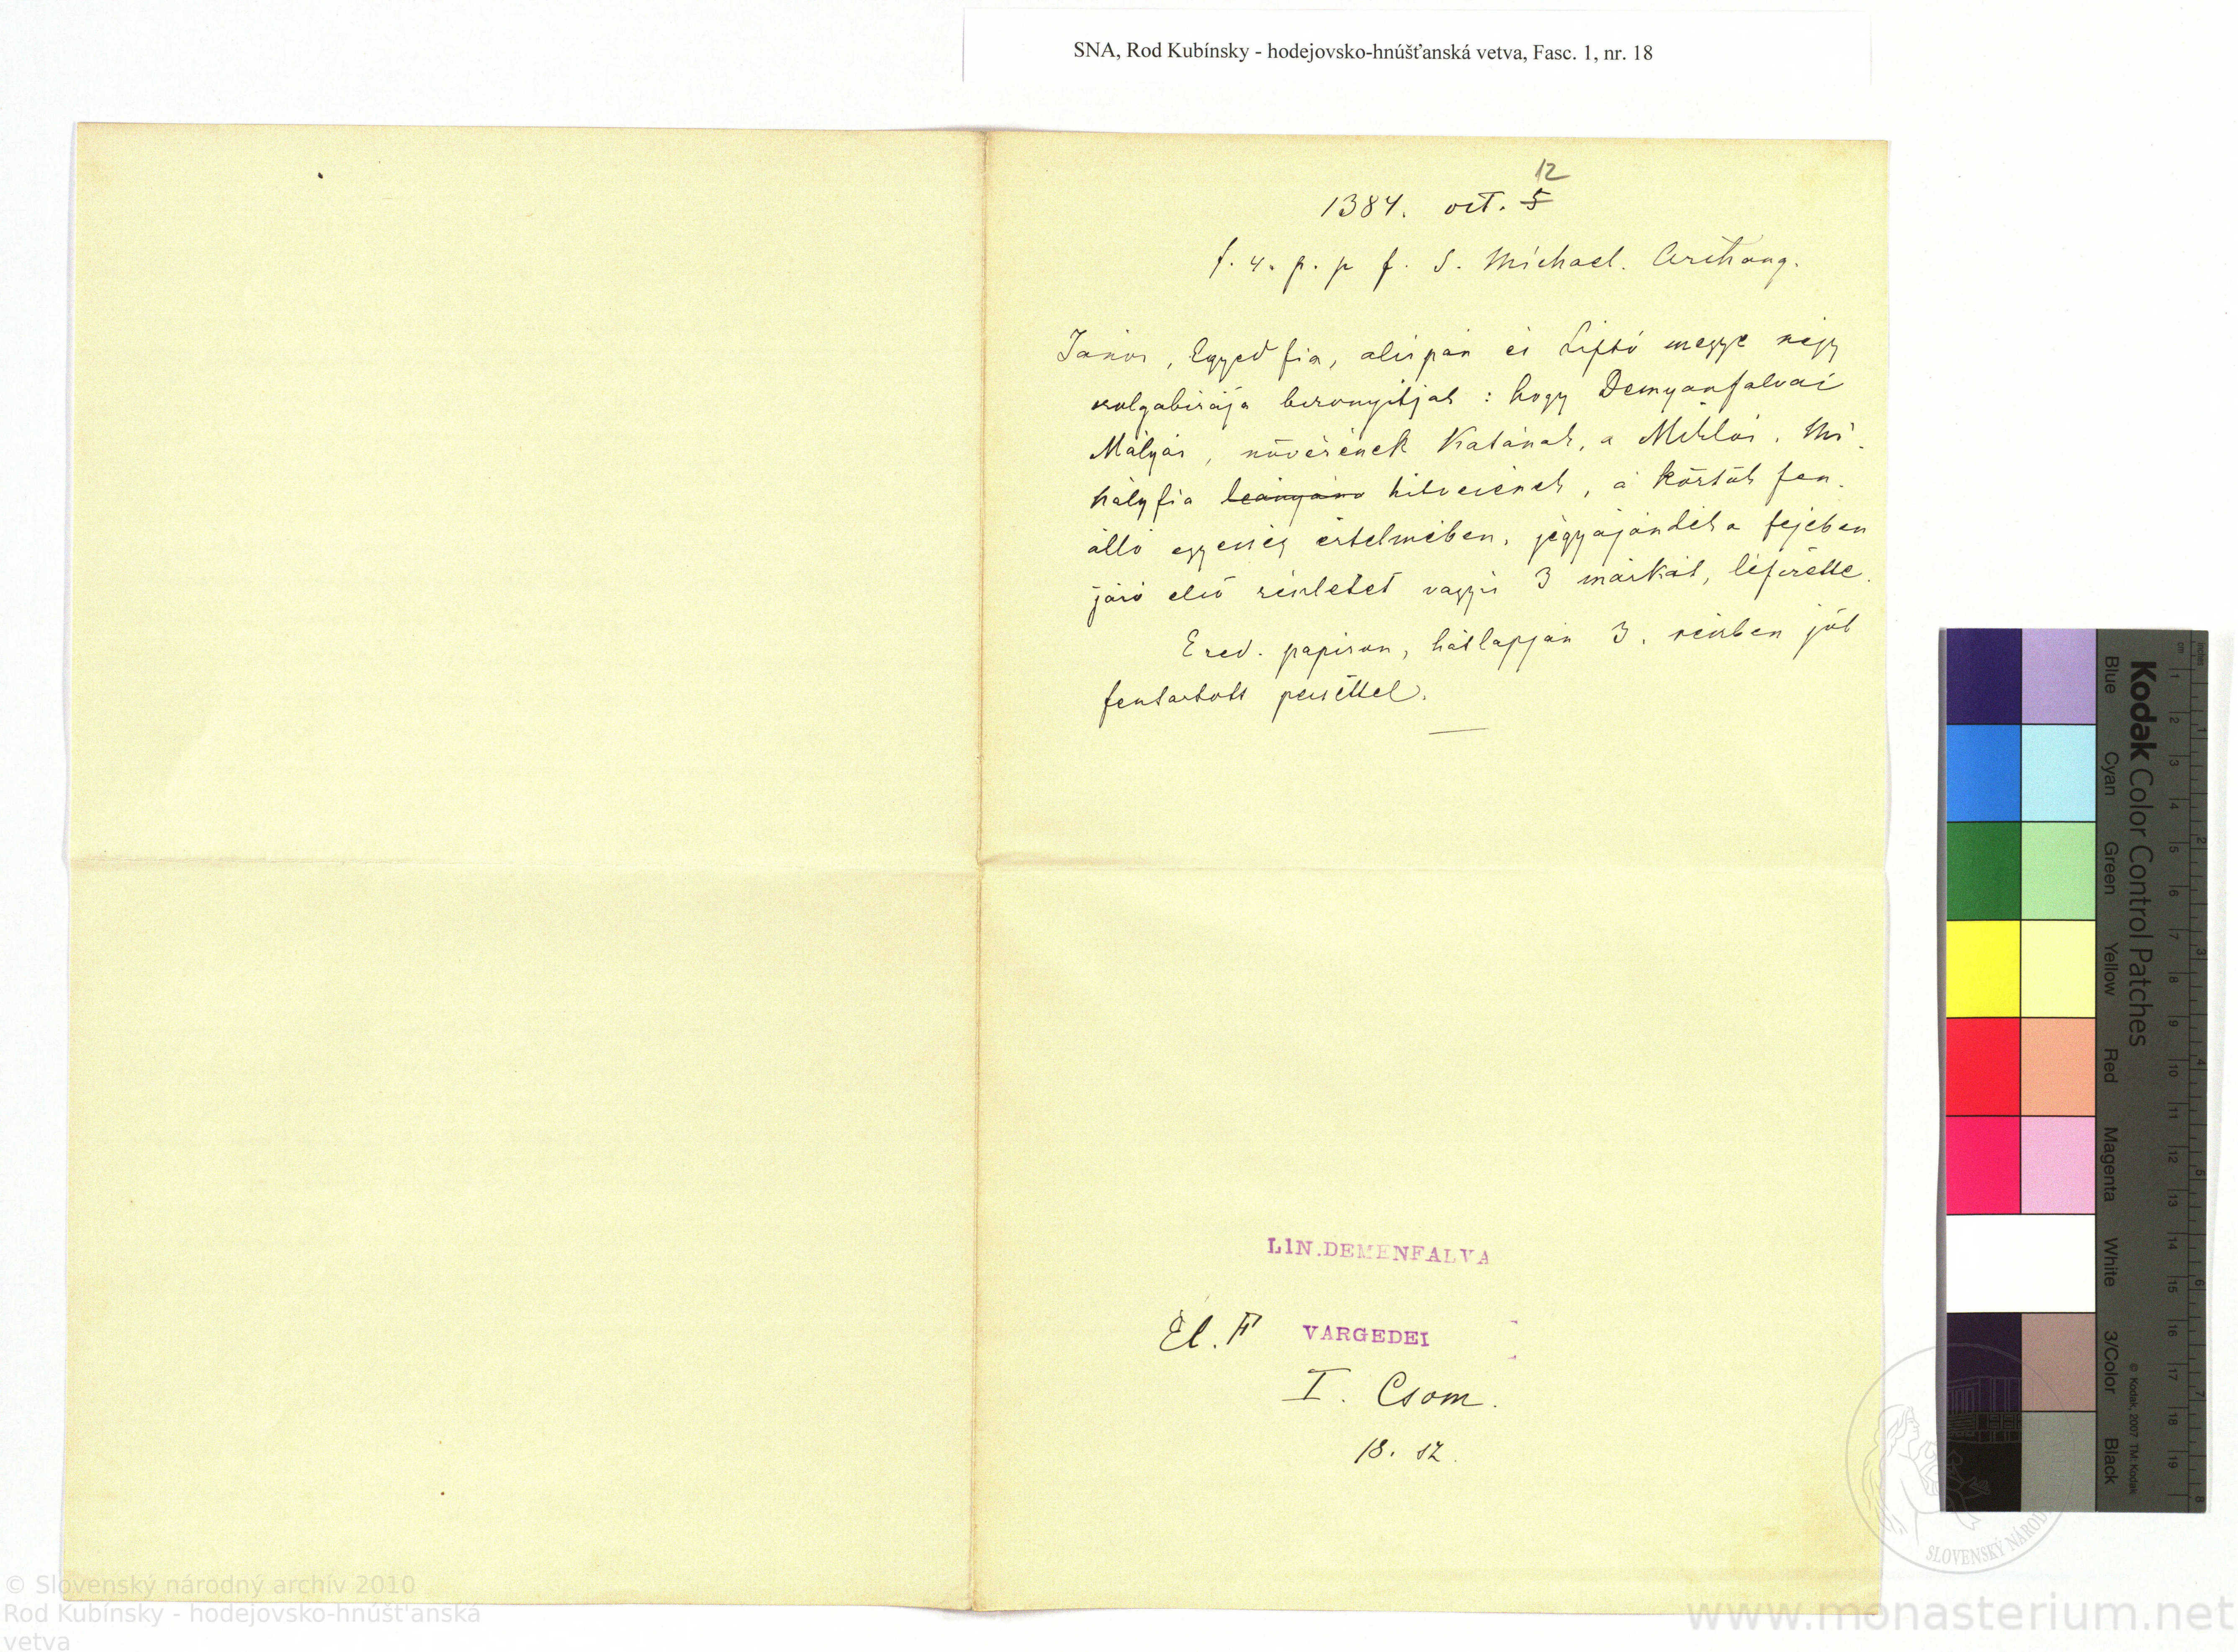 SNA, Rod Kubínsky - hodejovsko-hnúšťanská vetva, Fasc. 1, nr. 18
12
1384. oct. 5
f. 4. p. p f. S. Michael. Archang.
János, Egyed fia, alispán és Liptó megye négy
szolgabirája bizonyitják : hogy Demyanfalvai
Mátyás, nővérének Katának, a Miklós, Mi-
hály fia leányáno hitvesének, a köztük fen-
álló egyesség értelmében, jegyajándéka fejében
járó első részletet vagyis 3 márkát, lefizette.
Ered. papiron, hátlapján 3. részben jól
fentartott pecséttel.
LIN.DEMENFALVA
El. F VARGEDEI
I. Csom.
18. sz.
Kodak Color Control Patches
Blue Cyan Green Yellow Red Magenta White 3/Color Black
© Kodak, 2007 TM: Kodak
cm 1 2 3 4 5 6 7 8 9 10 11 12 13 14 15 16 17 18 19
inches 1 2 3 4 5 6 7 8
SLOVENSKÝ NÁROD
© Slovenský národný archív 2010
Rod Kubínsky - hodejovsko-hnúšt'anská
vetva
www.monasterium.net